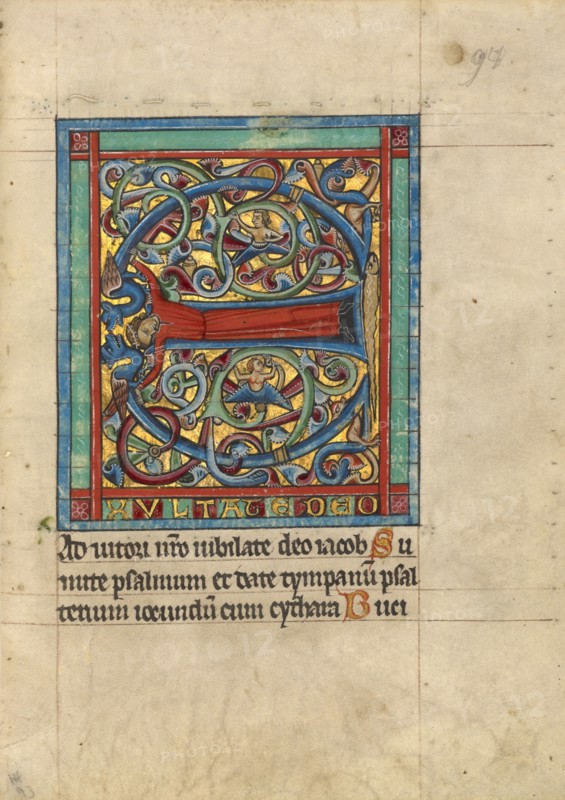 94
E
XVLTATE DEO
Ad iutori nr̄o iubilate deo iacob Su
mite psalmum et date tympanū psal
terium iocundū cum cythara Buci